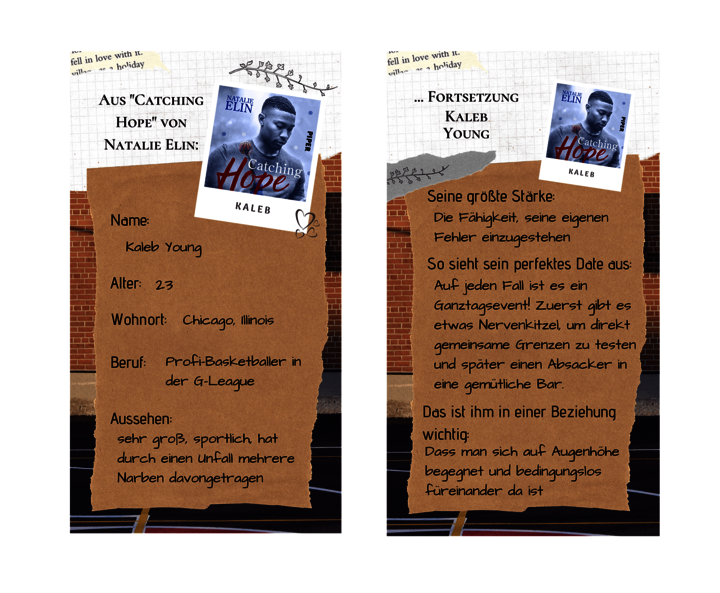 fell in love with it.
holiday
Aus "Catching
Hope" von
Natalie Elin:
NATALIE
ELIN
PIPER
Catching
Hope
KALEB
Name:
Kaleb Young
Alter: 23
Wohnort: Chicago, Illinois
Beruf: Profi-Basketballer in
der G-League
Aussehen:
sehr groß, sportlich, hat
durch einen Unfall mehrere
Narben davongetragen
fell in love with it.
as a holiday
... Fortsetzung
Kaleb
Young
NATALIE
ELIN
PIPER
Catching
Hope
KALEB
Seine größte Stärke:
Die Fähigkeit, seine eigenen
Fehler einzugestehen
So sieht sein perfektes Date aus:
Auf jeden Fall ist es ein
Ganztagsevent! Zuerst gibt es
etwas Nervenkitzel, um direkt
gemeinsame Grenzen zu testen
und später einen Absacker in
eine gemütliche Bar.
Das ist ihm in einer Beziehung
wichtig:
Dass man sich auf Augenhöhe
begegnet und bedingungslos
füreinander da ist